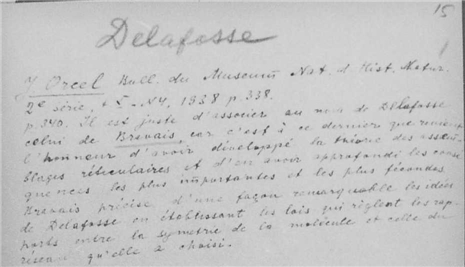 15
Delafosse
J Orcel Bull. du Museum Nat. d. Hist. Natur.
2e série, t X - N4, 1938 p. 338.
p. 340. Il est juste d'associer au nom de Delafosse
celui de Bravais, car c'est à ce dernier que revient
l'honneur d'avoir développé la théorie des assem-
blages réticulaires et d'en avoir approfondi les consé
quences les plus importantes et les plus fécondes
Bravais précise d'une façon remarquable les idées
de Delafosse en établissant les lois qui règlent les rap-
ports entre la symetrie de la molécule et celle du
réseau qu'elle a choisi.